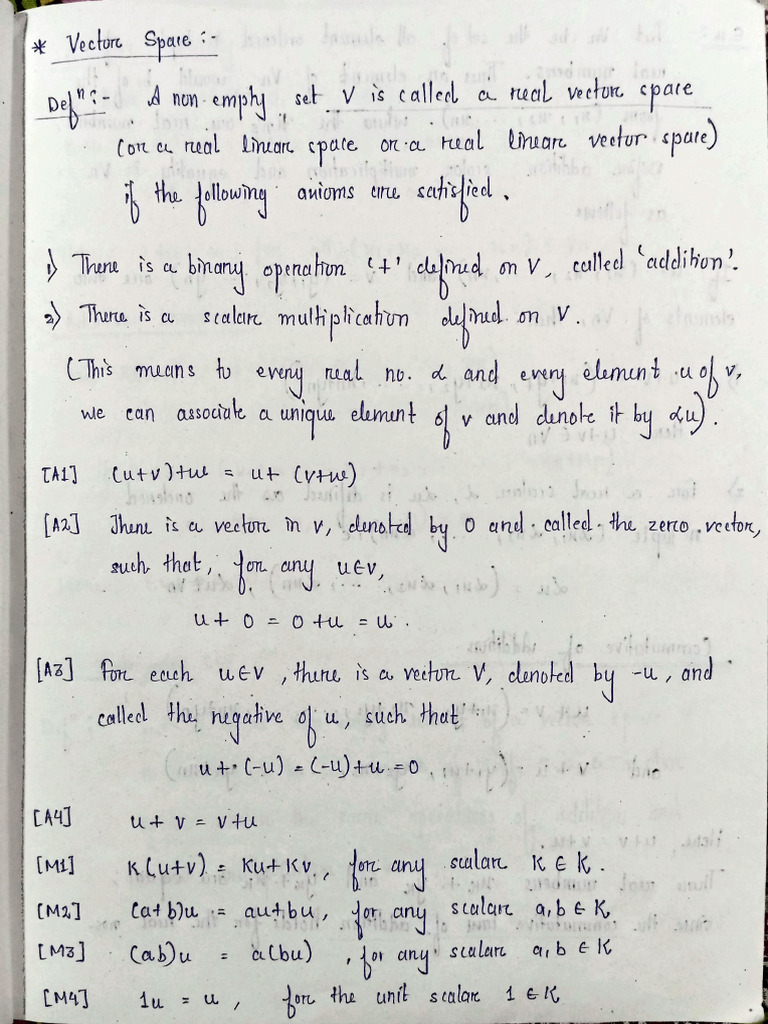 * Vector Space :-
Defⁿ :- A non empty set V is called a real vector space
(or a real linear space or a real linear vector space)
if the following anioms are satisfied.
1) There is a binary operation '+' defined on V, called 'addition'.
2) There is a scalar multiplication defined on V.
(This means to every real no. α and every element u of v,
we can associate a unique element of v and denote it by αu).
[A1] (u+v)+w = u+ (v+w)
[A2] There is a vector in v, denoted by 0 and called the zero vector,
such that, for any u∈v,
u+ 0 = 0 +u = u.
[A3] For each u∈v, there is a vector V, denoted by -u, and
called the negative of u, such that
u+ (-u) = (-u)+u =0.
[A4] u + v = v+u
[M1] K(u+v) = Ku+Kv, for any scalar K ∈ K.
[M2] (a+b)u = au+bu, for any scalar a,b ∈ K
[M3] (ab)u = a(bu) , for any scalar a,b ∈ K
[M4] 1u = u, for the unit scalar 1 ∈ K